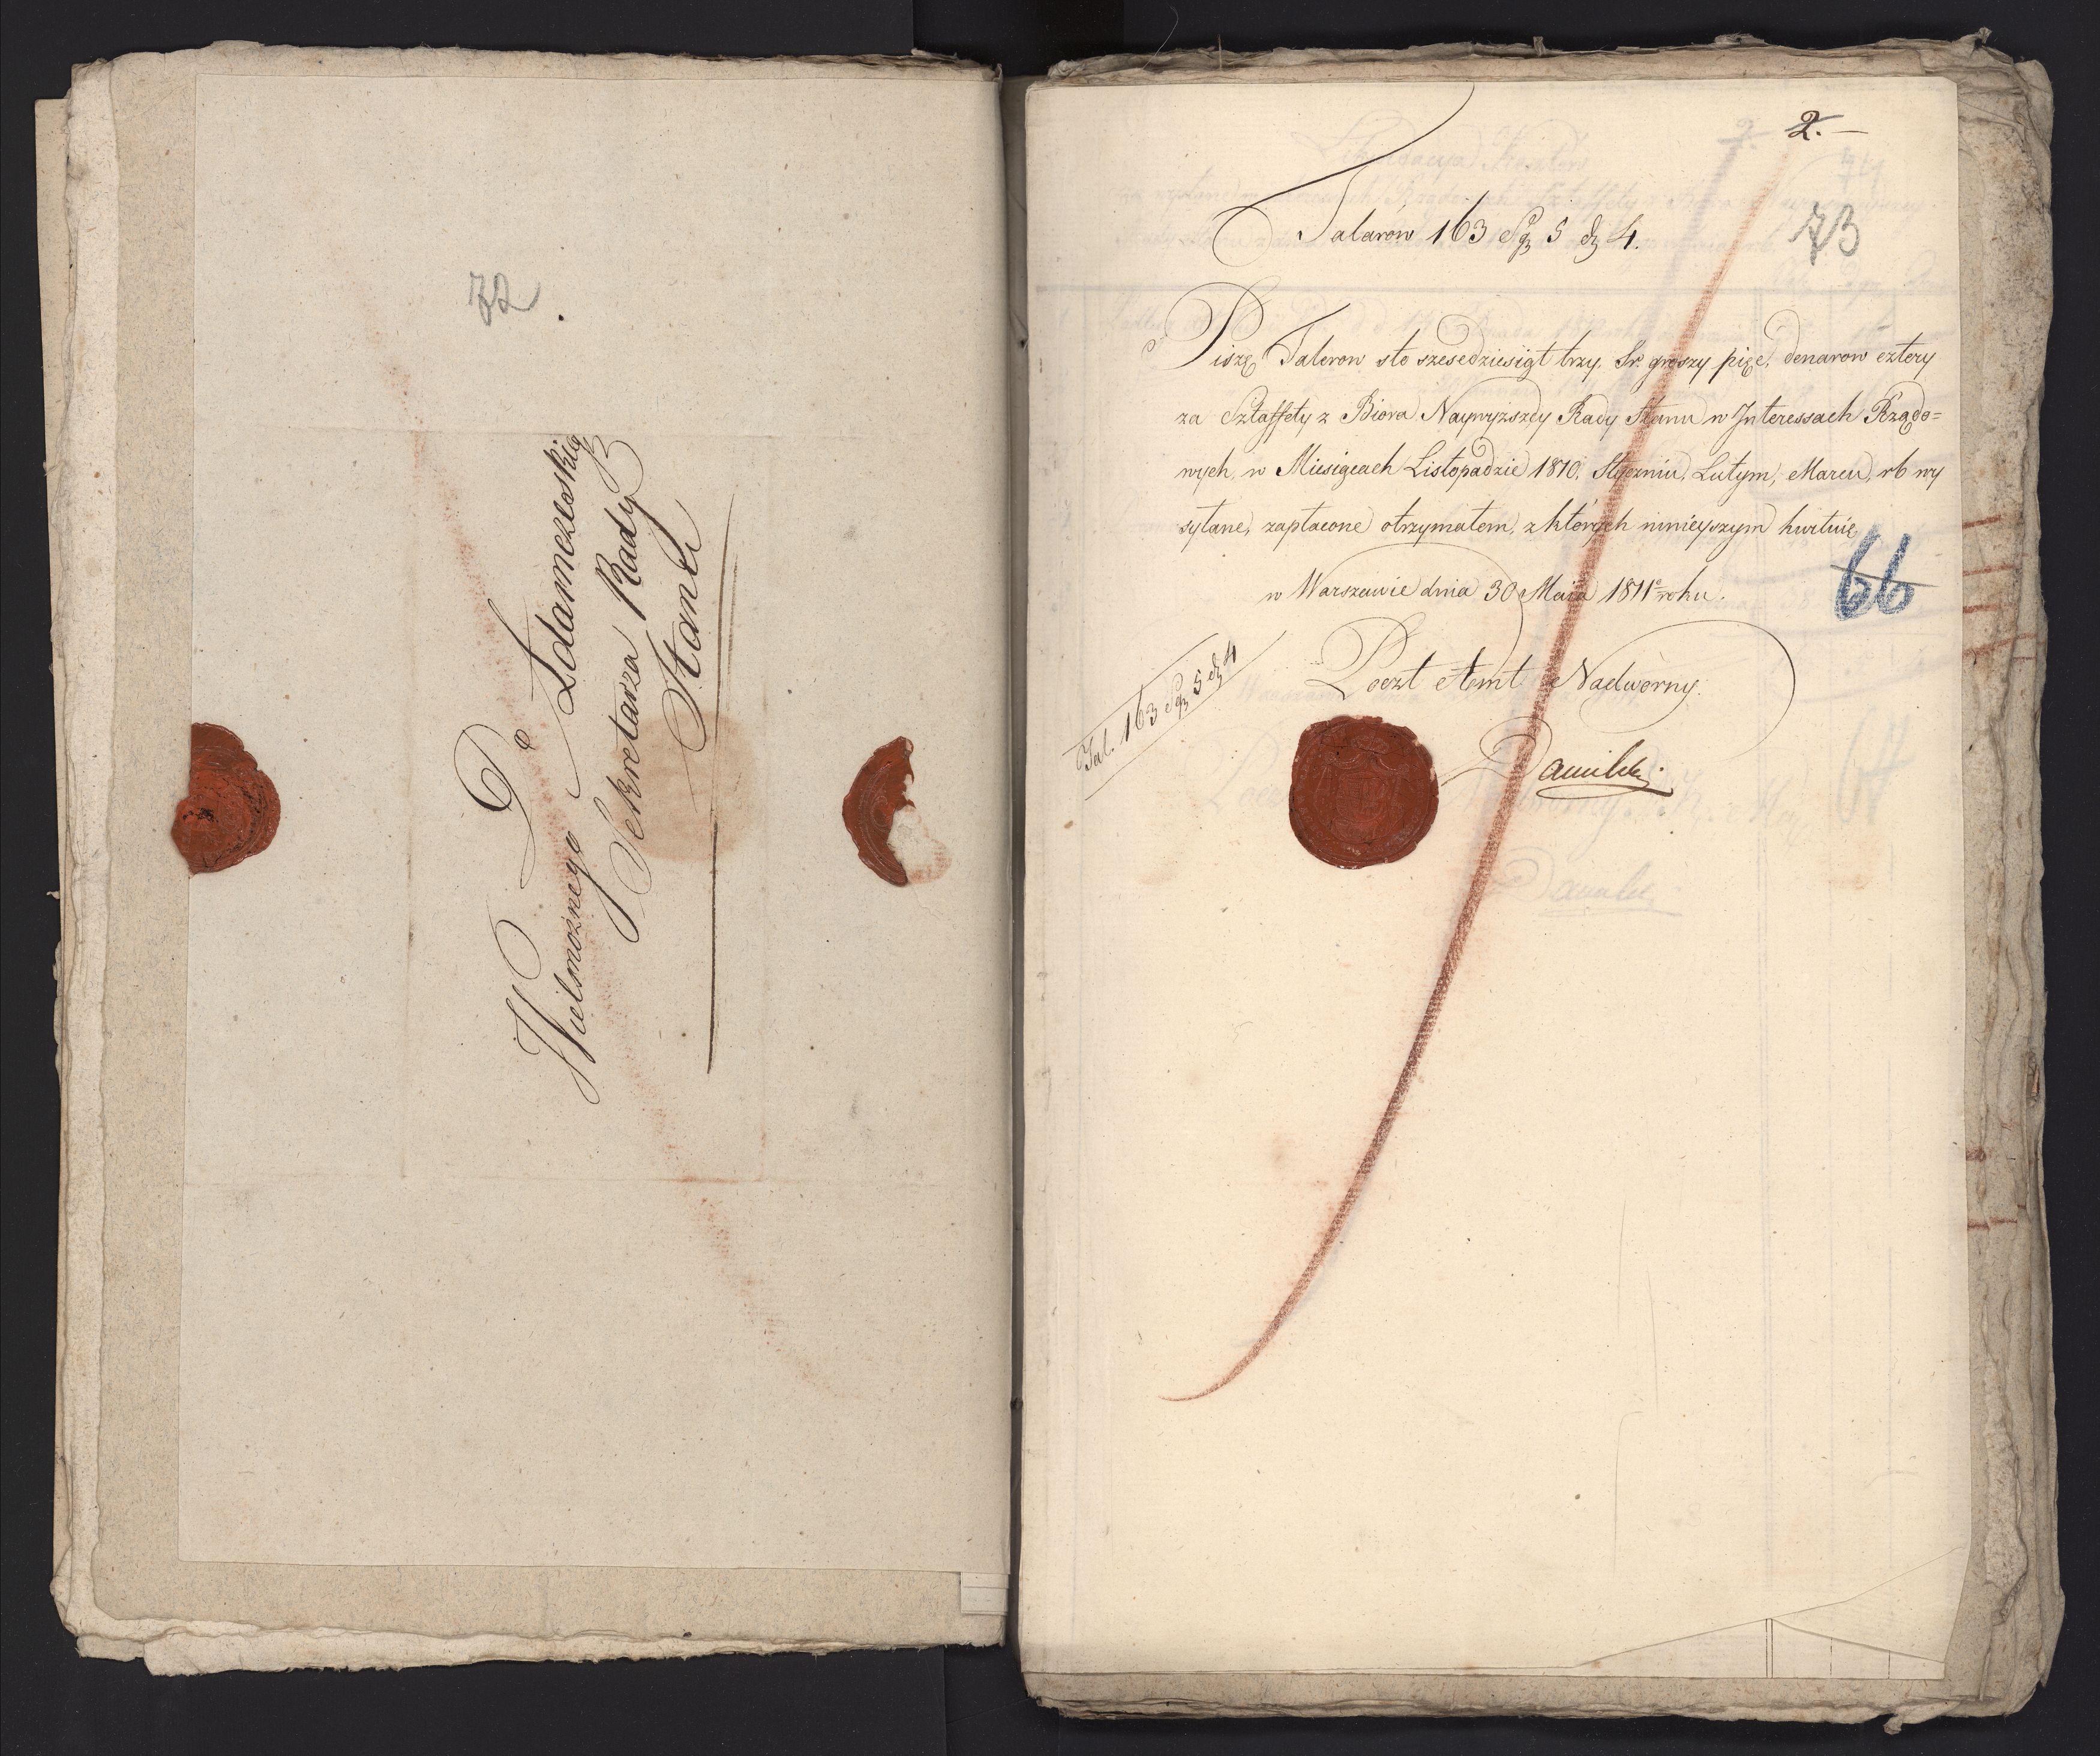 72.
Do
Wielmożnego Adamczewskiego
Sekretarza Rady
Stanu
2.
73
Talarów 163 Sgr 5 d 4.
Piszę Talerow sto szescdziesiąt trzy, Sr. groszy pięć, denarow cztery
za Sztaffety z Biora Naywyższey Rady Stanu w Interessach Rządo=
wych, w Miesiącach Listopadzie 1810, Styczniu, Lutym, Marcu, rb wy
syłane, zapłacone otrzymałem, z których ninieyszym kwituię
66
w Warszawie dnia 30 Maia 1811o roku.
Tal. 163 Sgr 5 d 4
Poczt Amt Nadworny.